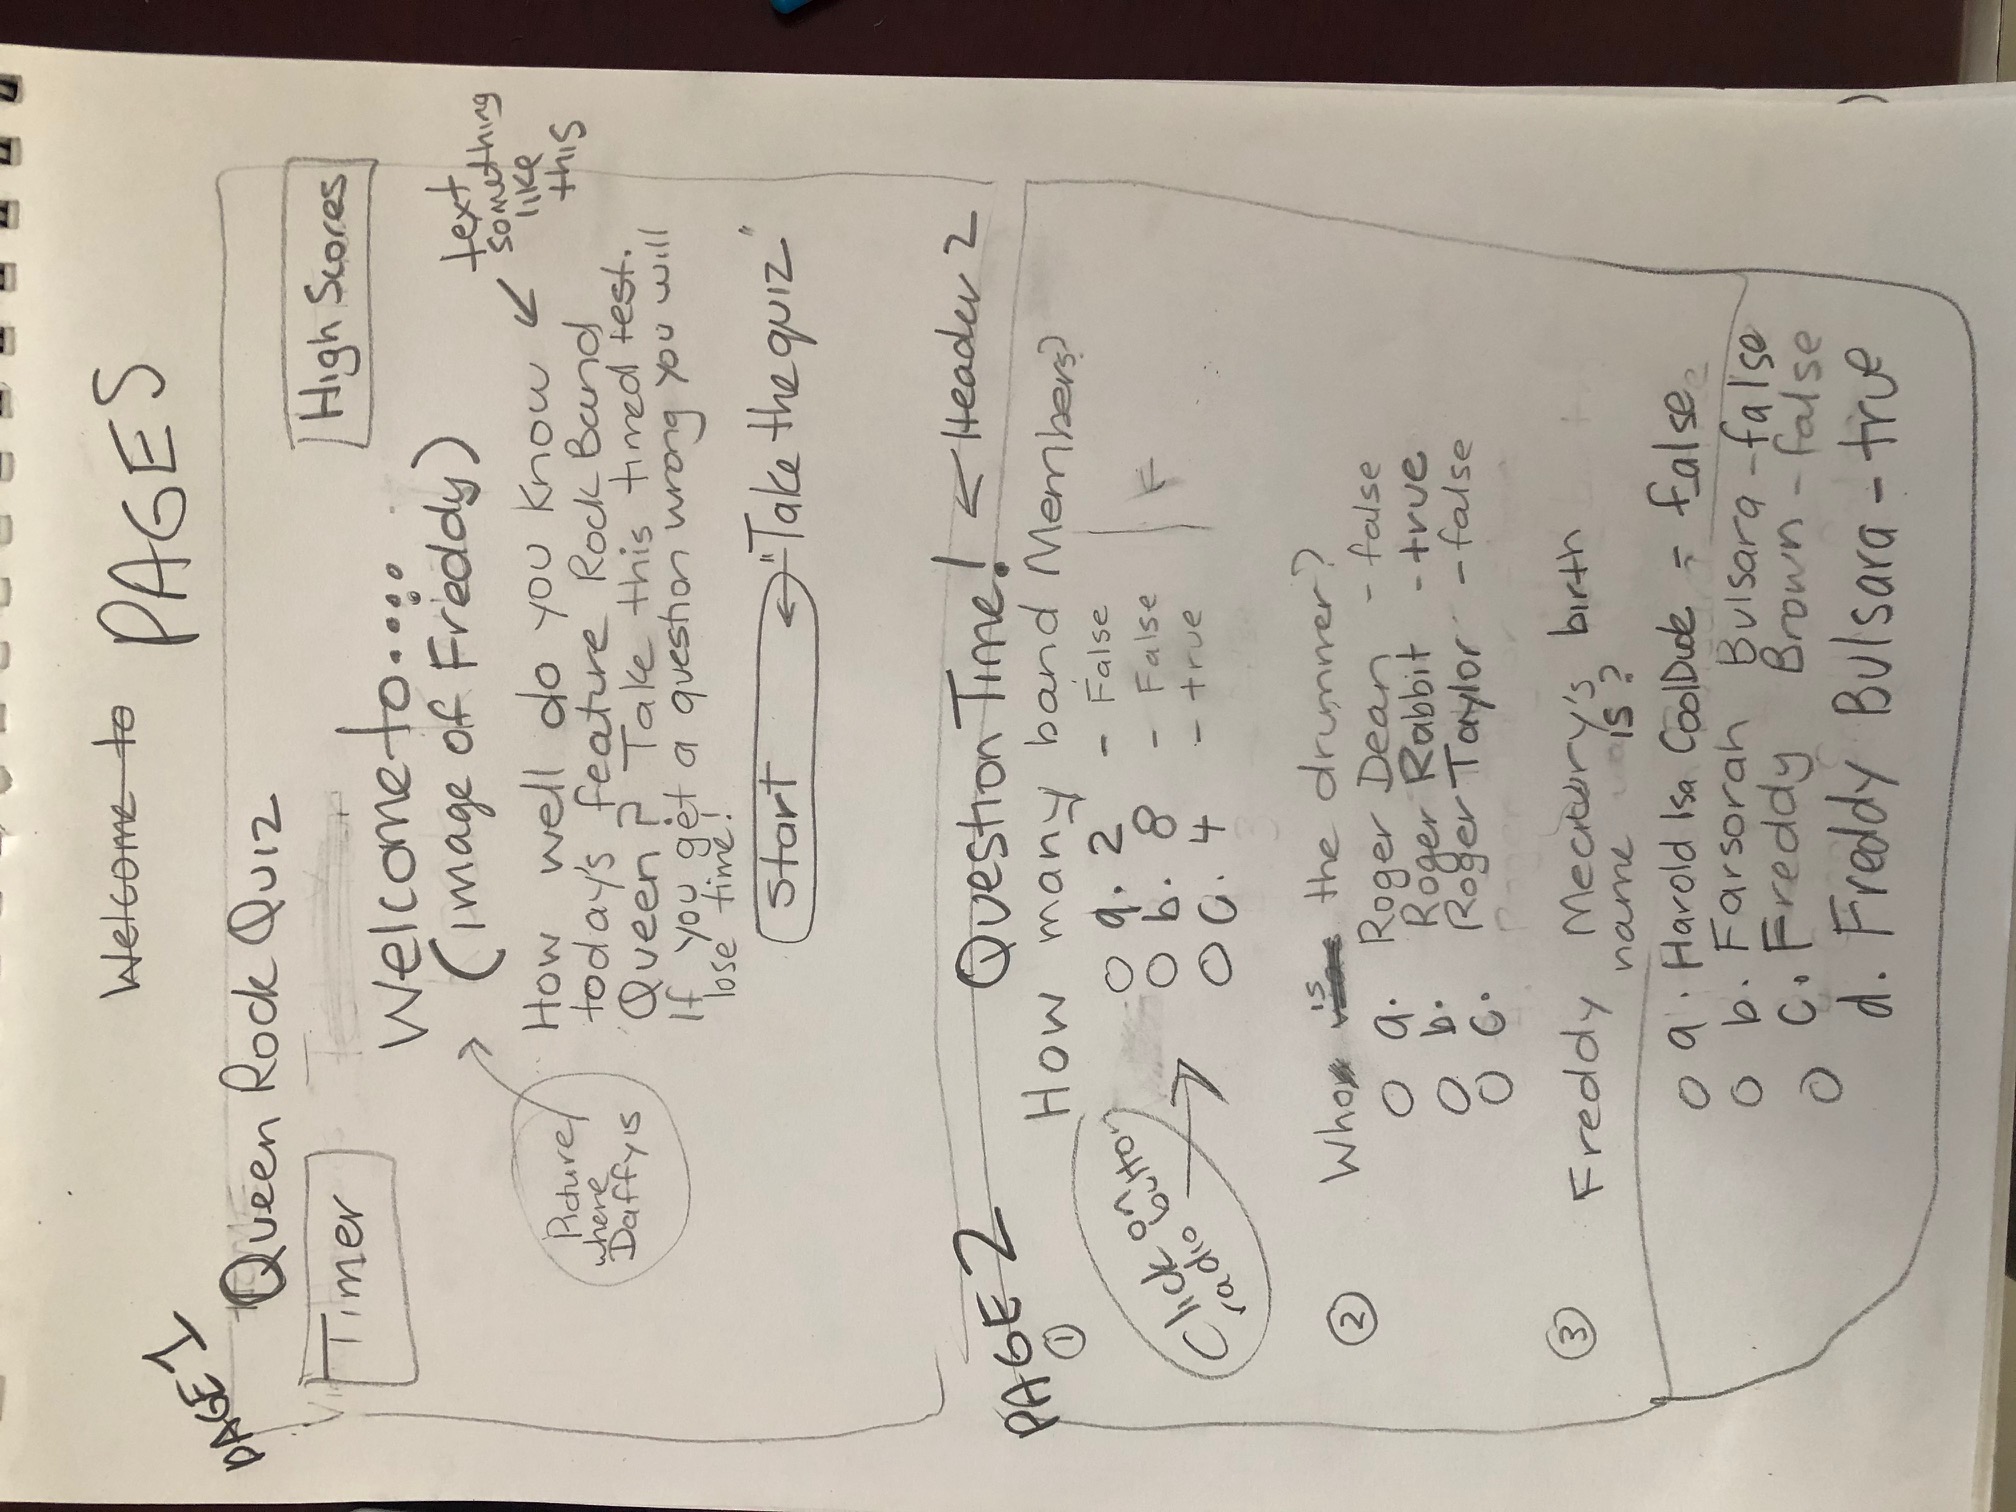 Welcome to
PAGES
PAGE 1
Queen Rock Quiz
Timer
High Scores
Welcome to....
(image of Freddy)
text
something
like
this
Picture
where
Daffy is
How well do you know
today's feature Rock Band
Queen? Take this timed test.
If you get a question wrong you will
lose time!
Start
"Take the quiz"
PAGE 2
Question Time!
Header 2
① How many band Members?
Click on
radio button
a. 2 - False
b. 8 - False
c. 4 - true
F
② Who is the drummer?
a. Roger Dean - false
b. Roger Rabbit - true
c. Roger Taylor - false
③ Freddy Mecury's birth
name is?
a. Harold Isa CoolDude - false
b. Farsorah Bulsara - false
c. Freddy Brown - false
d. Freddy Bulsara - true